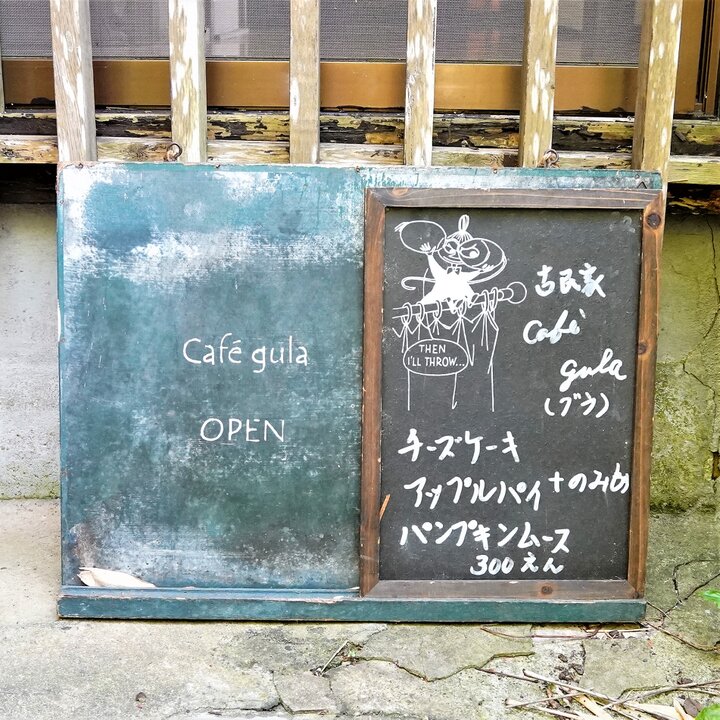 Café gula
OPEN
THEN
I'LL THROW...
古民家
Café
gula
(グラ)
チーズケーキ
アップルパイ +のみもの
パンプキンムース
300えん